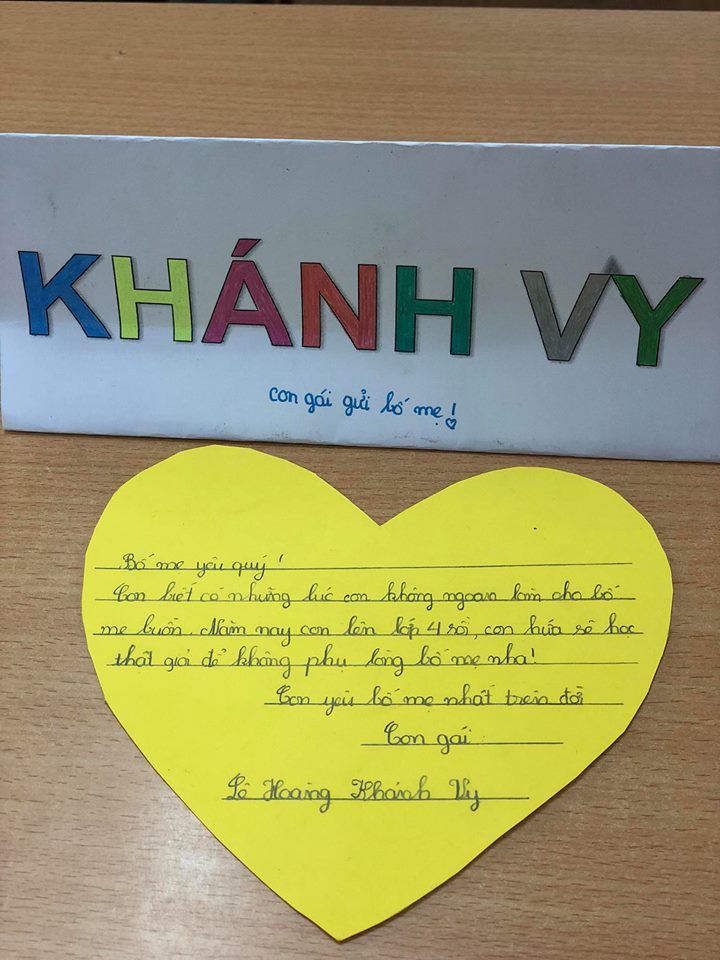 KHÁNH VY
con gái gửi bố mẹ!
Bố mẹ yêu quý!
Con biết có những lúc con không ngoan làm cho bố
mẹ buồn. Năm nay con lên lớp 4 rồi, con hứa sẽ học
thật giỏi để không phụ lòng bố mẹ nha!
Con yêu bố mẹ nhất trên đời
Con gái
Lê Hoàng Khánh Vy